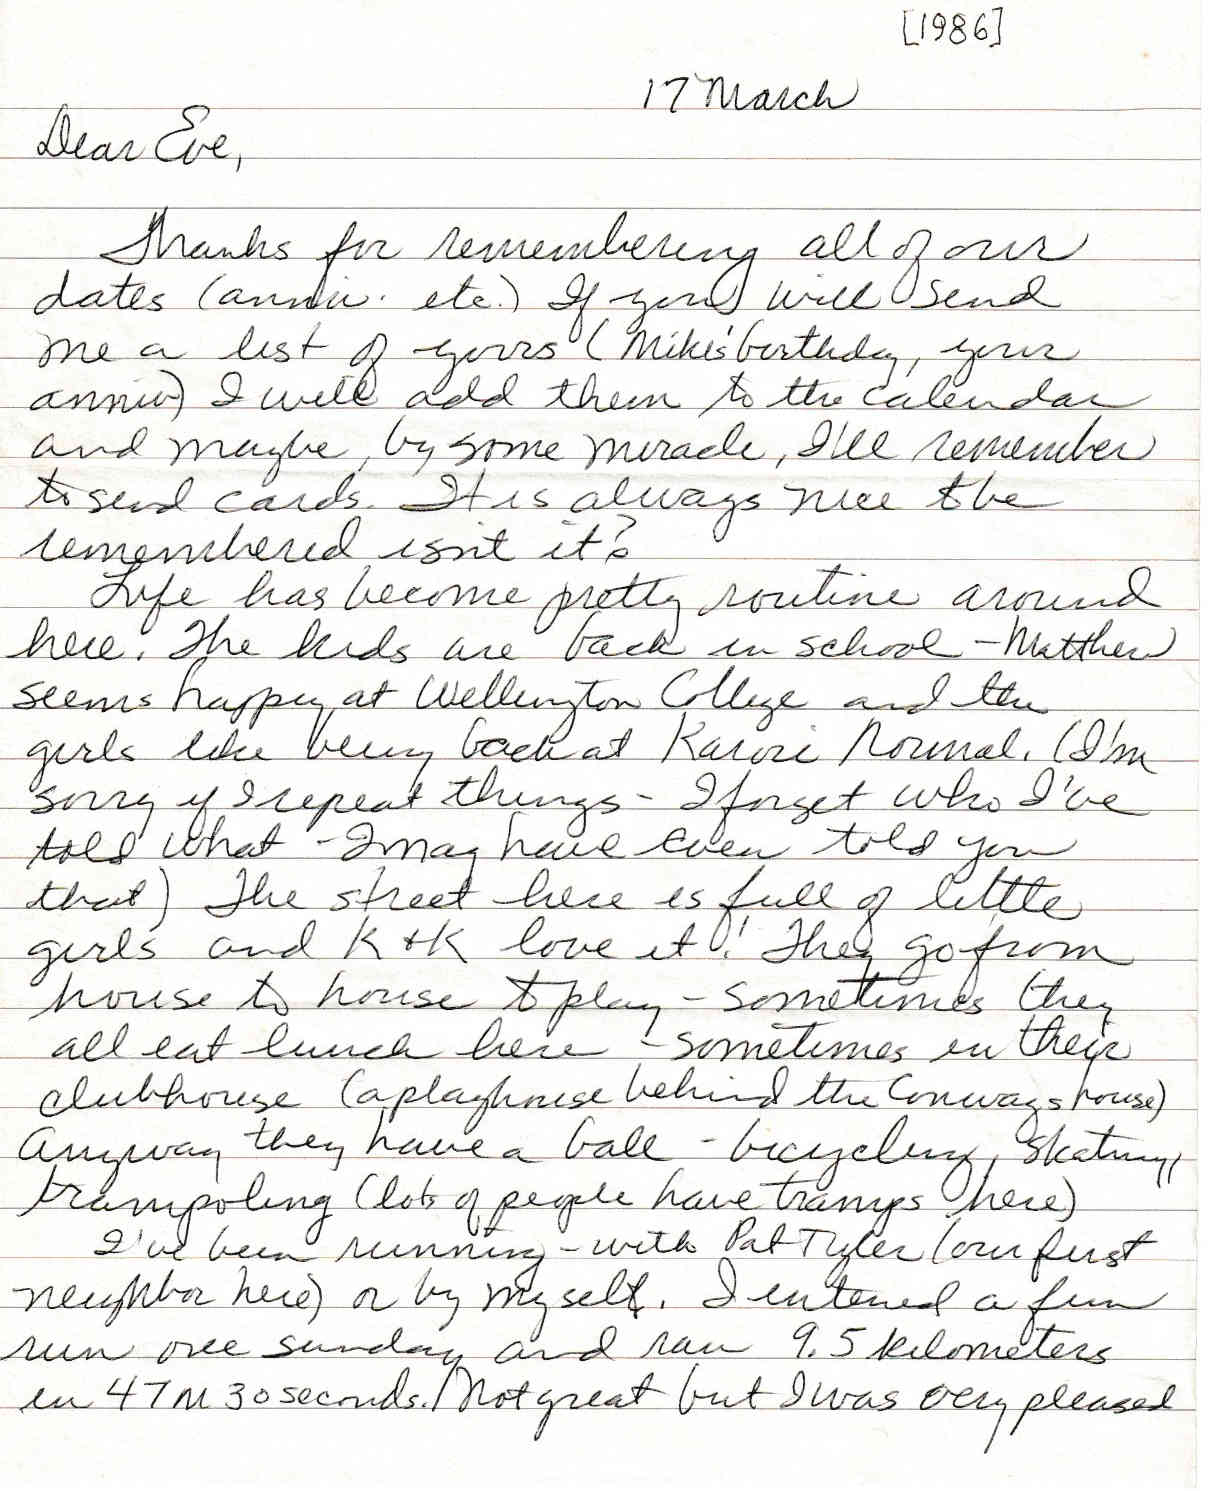 [1986]
17 March
Dear Eve,
Thanks for remembering all of our
dates (anniv. etc.) If you will send
me a list of yours (Mike's birthday, your
anniv) I will add them to the calendar
and maybe, by some miracle, I'll remember
to send cards. It is always nice to be
remembered isn't it?
Life has become pretty routine around
here. The kids are back in school - Matthew
seems happy at Wellington College and the
girls like being back at Karori Normal. (I'm
sorry if I repeat things - I forget who I've
told what - I may have even told you
that) The street here is full of little
girls and K & K love it! They go from
house to house to play - sometimes they
all eat lunch here - sometimes in their
clubhouse (a playhouse behind the Conways house)
Anyway they have a ball - bicycling, skating,
trampoling (lots of people have tramps here)
I've been running - with Pat Tyler (our first
neighbor here) or by myself. I entered a fun
run one Sunday and ran 9.5 kilometers
in 47 M 30 seconds. Not great but I was very pleased